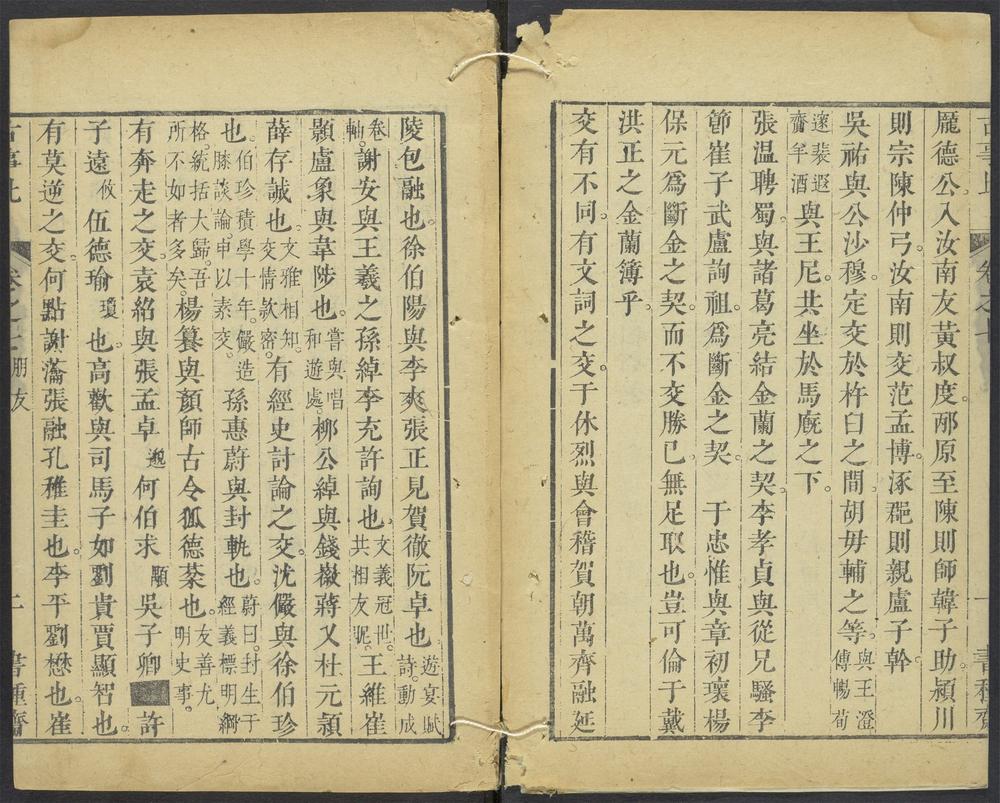 龐德公入汝南友黃叔度。邴原至陳則師韓子助。潁川
則宗陳仲弓。汝南則交范孟博。涿郡則親盧子幹
吳祐與公沙穆。定交於杵臼之間。胡毋輔之等。與王澄傅暢荀
邃裴遐齎羊酒與王尼。共坐於馬廐之下。
張温聘蜀。與諸葛亮結金蘭之契。李孝貞與從兄騷李
節崔子武盧詢祖。爲斷金之契。 于忠惟與章初瓌楊
保元爲斷金之契。而不交勝已。無足取也。豈可倫于戴
洪正之金蘭簿乎
交有不同。有文詞之交。于休烈與會稽賀朝萬齊融延
卷之七
陵包融也。徐伯陽與李爽。張正見賀徹阮卓也遊宴賦詩。動成
卷軸。謝安與王羲之孫綽李充許詢也。文義冠世。共相友昵。王維崔
顥盧象與韋陟也。嘗與唱和遊處。柳公綽與錢徽蔣乂杜元頴
薛存誠也。文雅相知。交情欵密。有經史討論之交。沈儼與徐伯珍
也。伯珍積學十年。儼造膝談論。申以素交。 孫惠蔚與封軌也。蔚曰。封生于經義標明綱
格。統括大歸。吾所不如者多矣。楊纂與顏師古令狐德棻也。友善尤明史事。
有奔走之交。袁紹與張孟卓邈何伯求顒吳子卿 許
子遠攸伍德瑜瓊也。高歡與司馬子如劉貴賈顯智也。
有莫逆之交。何點謝瀹張融孔稚圭也。李平劉懋也。崔
古事比 卷之七 朋友 二 書種齋